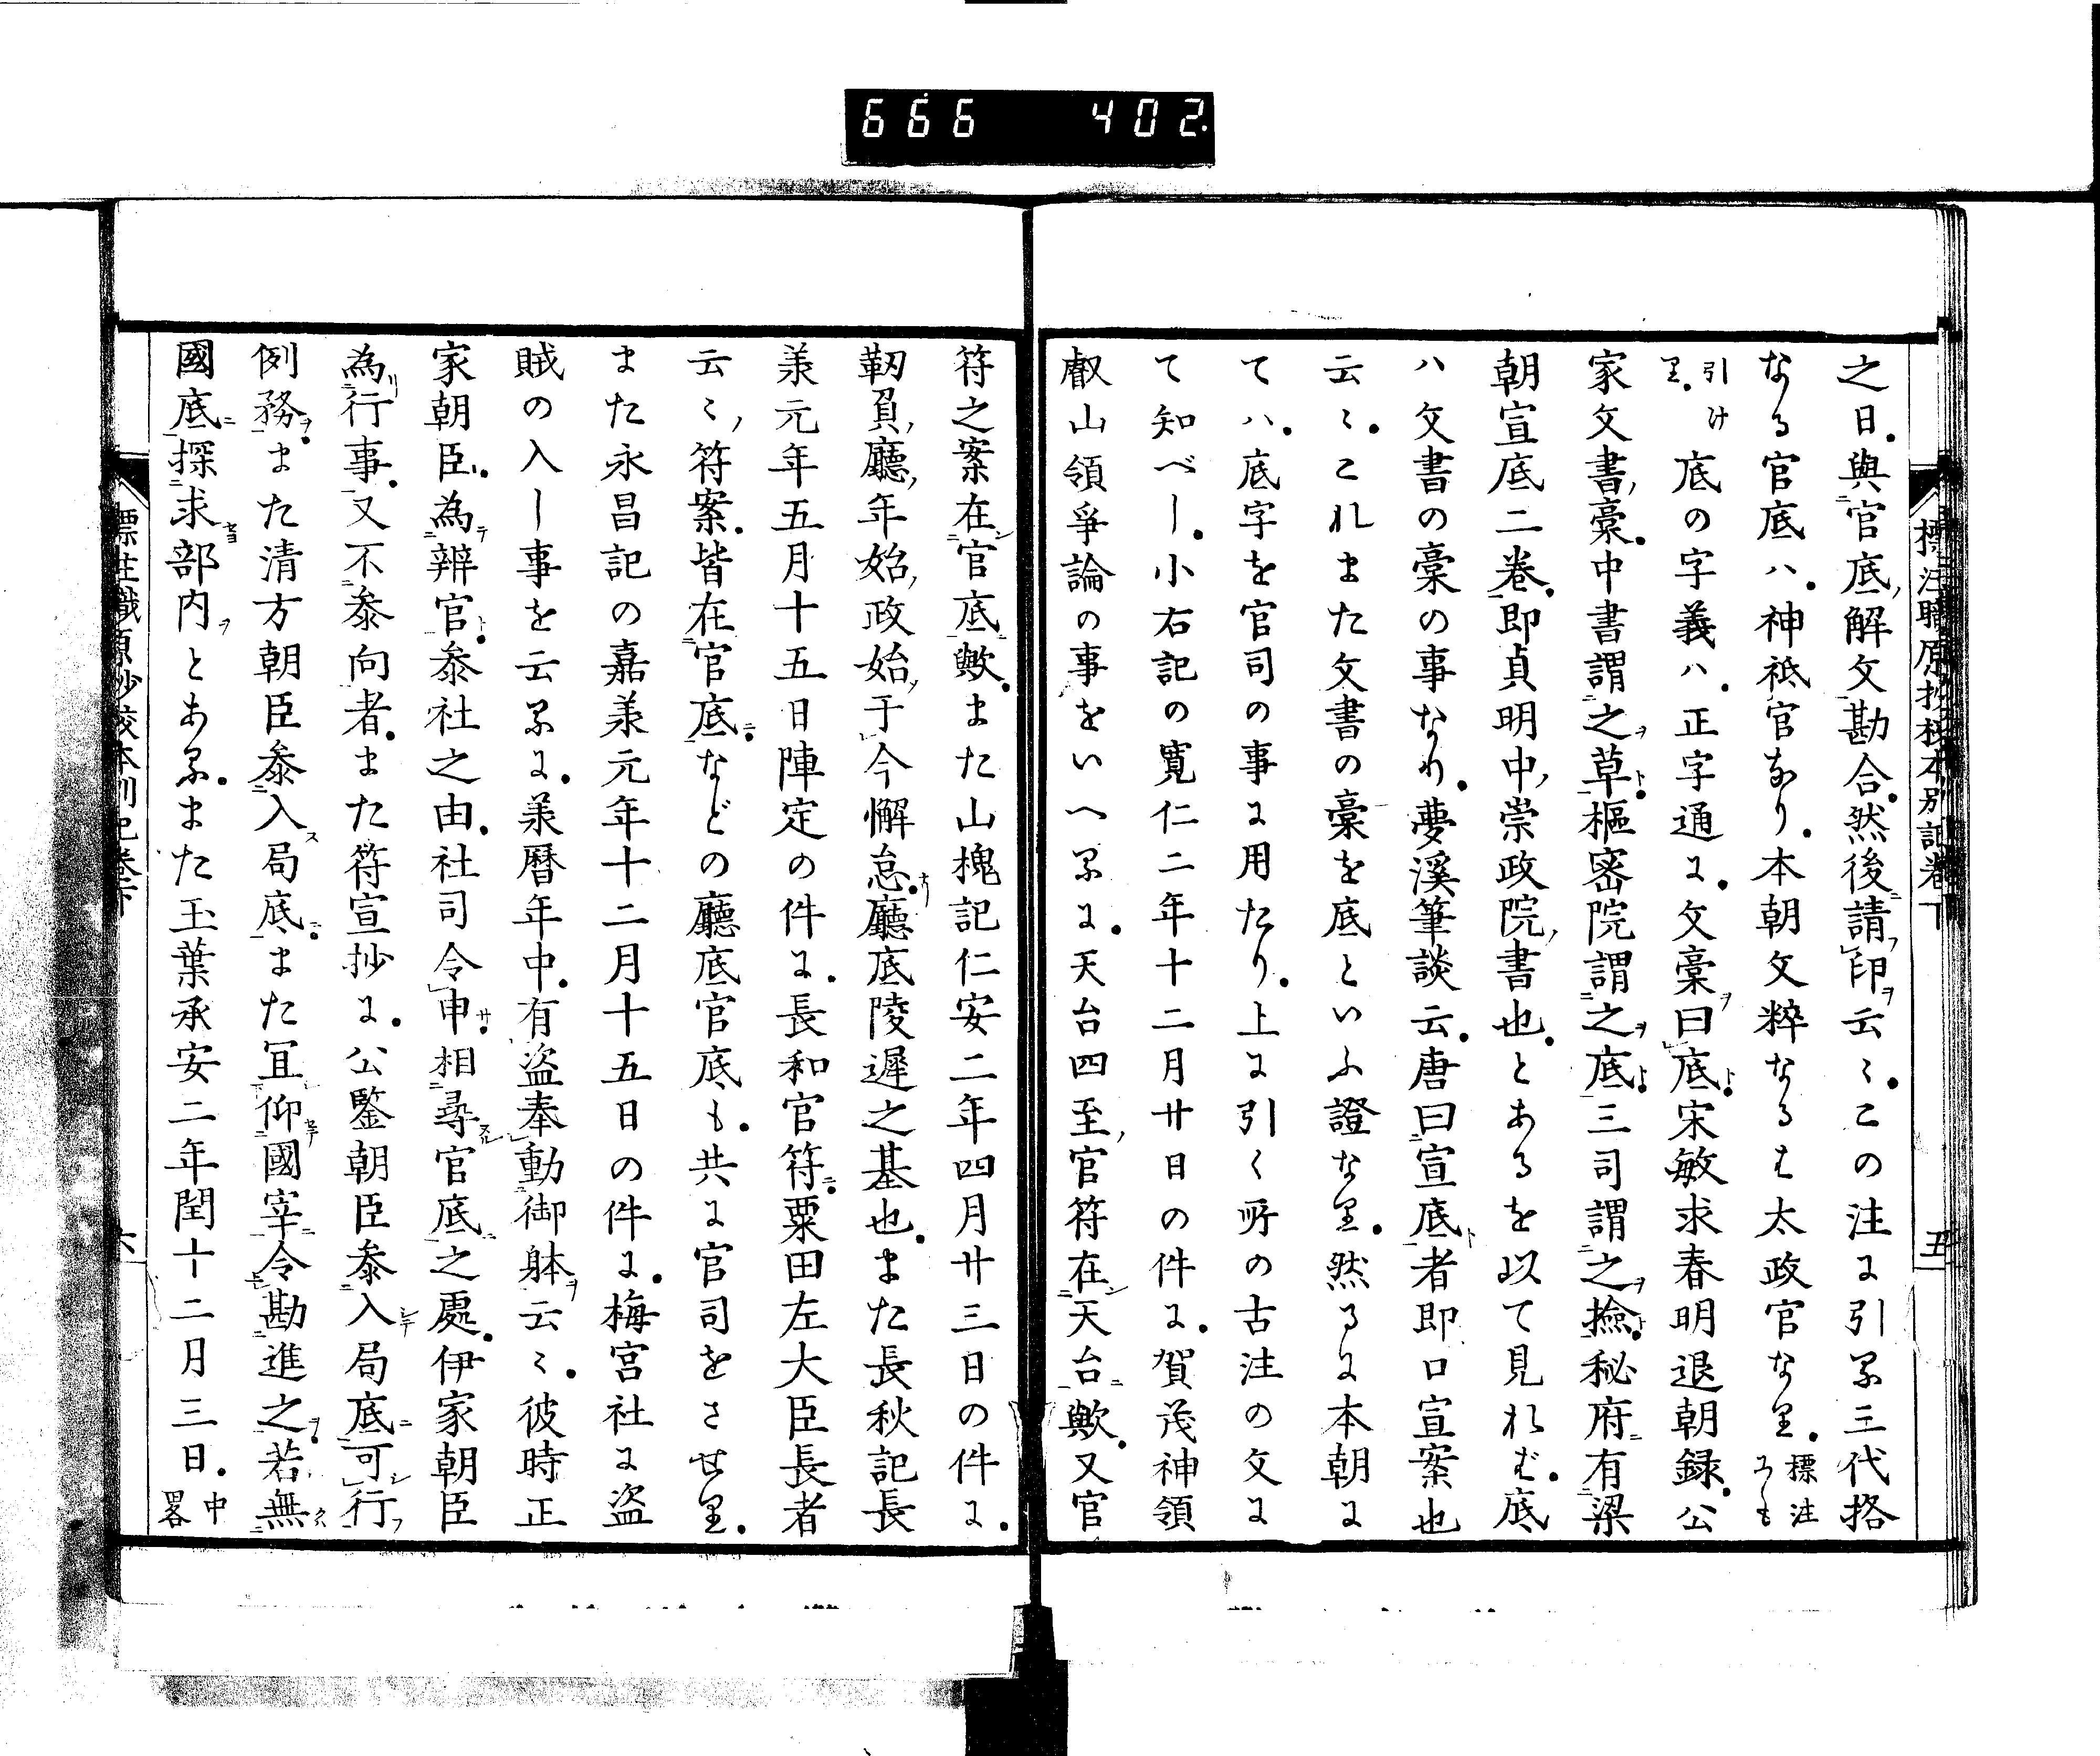 666 402.
標注職原抄校本別記卷下
五
之日。與官底解文勘合。然後請印云〻。この注に引る三代格
なる官底ハ。神祇官なり。本朝文粹なるは太政官なり。標注にも
引けり。底の字義ハ。正字通に。文稾曰底。宋敏求春明退朝録。公
家文書稾。中書謂之草。樞密院謂之底。三司謂之撿。秘府有梁
朝宣底二卷。即貞明中崇政院書也。とあるを以て見れば。底
ハ文書の稾の事なり。夢溪筆談云。唐曰宣底者即口宣案也
云〻。これまた文書の稾を底といふ證なり。然るに本朝に
てハ。底字を官司の事に用たり。上に引く所の古注の文に
て知べし。小右記の寛仁二年十二月廿日の件に。賀茂神領
叡山領爭論の事をいへるに。天台四至官符在天台歟。又官
符之案在官底歟。また山槐記仁安二年四月廿三日の件に。
靭負廳年始政始于今懈怠。廳底陵遲之基也。また長秋記長
羕元年五月十五日陣定の件に。長和官符。粟田左大臣長者
云〻符案。皆在官底。などの廳底官底も。共に官司をさせり。
また永昌記の嘉羕元年十二月十五日の件に。梅宮社に盗
賊の入し事を云るに。羕暦年中。有盗奉動御躰云〻。彼時正
家朝臣。為辨官。叅社之由。社司令申。相尋官底之處。伊家朝臣
為行事。又不叅向者。また符宣抄に。公鑒朝臣叅入局底可行
例務。また清方朝臣叅入局底。また冝仰國宰令勘進之。若無
國底探求部内とあり。また玉葉承安二年閏十二月三日。中畧
標注職原抄校本別記卷下
六